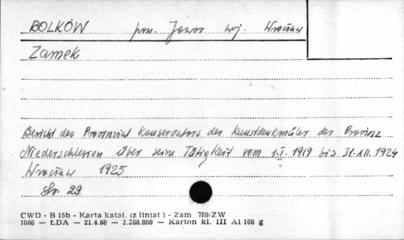 BOLKÓW pow. Jawor woj. Wrocław
Zamek
Bericht des Provinzial Konservators der Kunstdenkmäler der Provinz
Niederschlesien über seine Tätigkeit vom 1.I.1919 bis 31.XII.1924
Wrocław 1925
str. 29
CWD - B 15b - Karta katal. (z liniat) - Zam 788/ZW
1060 — ŁDA — 21.4.60 — 2.360.000 — Karton kl. III A1 160 g